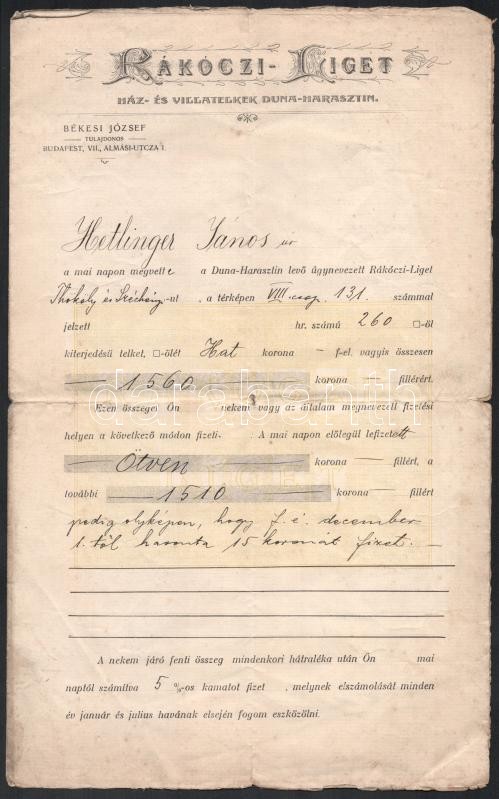 RÁKÓCZI-LIGET
HÁZ- ÉS VILLATELKEK DUNA-HARASZTIN.
BÉKESI JÓZSEF
TULAJDONOS
BUDAPEST, VII., ALMÁSI-UTCZA 1.
Hetlinger János úr
a mai napon megvette a Duna-Harasztin levő úgynevezett Rákóczi-Liget
Thököly és Széchényi-ut, a térképen VIII. csop. 131. számmal
jelzett hr. számú 260 □-öl
kiterjedésű telket, □-ölét Hat korona — f-el, vagyis összesen
— 1560 — korona — fillérért.
Ezen összeget Ön nekem vagy az általam megnevezett fizetési
helyen a következő módon fizeti. A mai napon előlegül lefizetett
— Ötven — korona — fillért, a
további — 1510 — korona — fillért
pedig olyképen, hogy f. é. december
1.től havonta 15 koronát fizet. —
A nekem járó fenti összeg mindenkori hátraléka után Ön mai
naptól számítva 5 %-os kamatot fizet, melynek elszámolását minden
év január és julius havának elsején fogom eszközölni.
darabanth